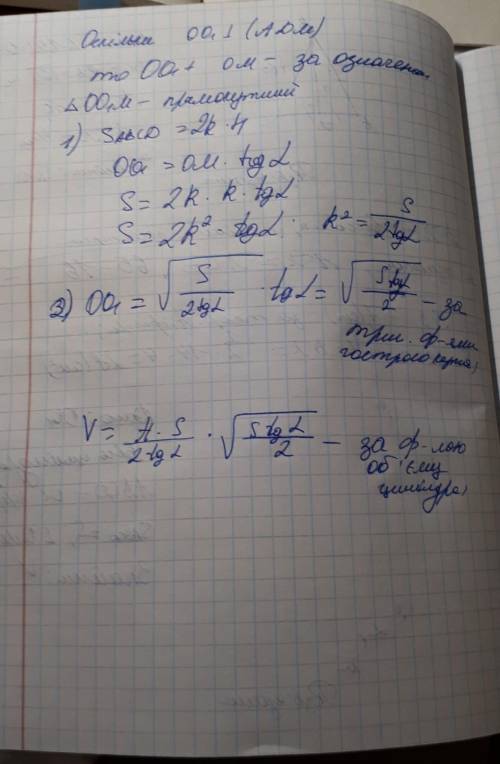 Оскільки OO₁ ⊥ (ADM)
то OO₁ ⊥ OM – за означенням
△OO₁M – прямокутний
1) S_ABCD = 2R · H
OO₁ = OM · tg L
S = 2R · R · tg L
S = 2R² · tg L · R² = S / (2 tg L)
2) OO₁ = √(S / (2 tg L)) · tg L = √((S tg L) / 2) – за
триг. ф-ями
гострого кута)
V = (π · S) / (2 tg L) · √((S tg L) / 2) – за ф-лою
об'єму
циліндра)